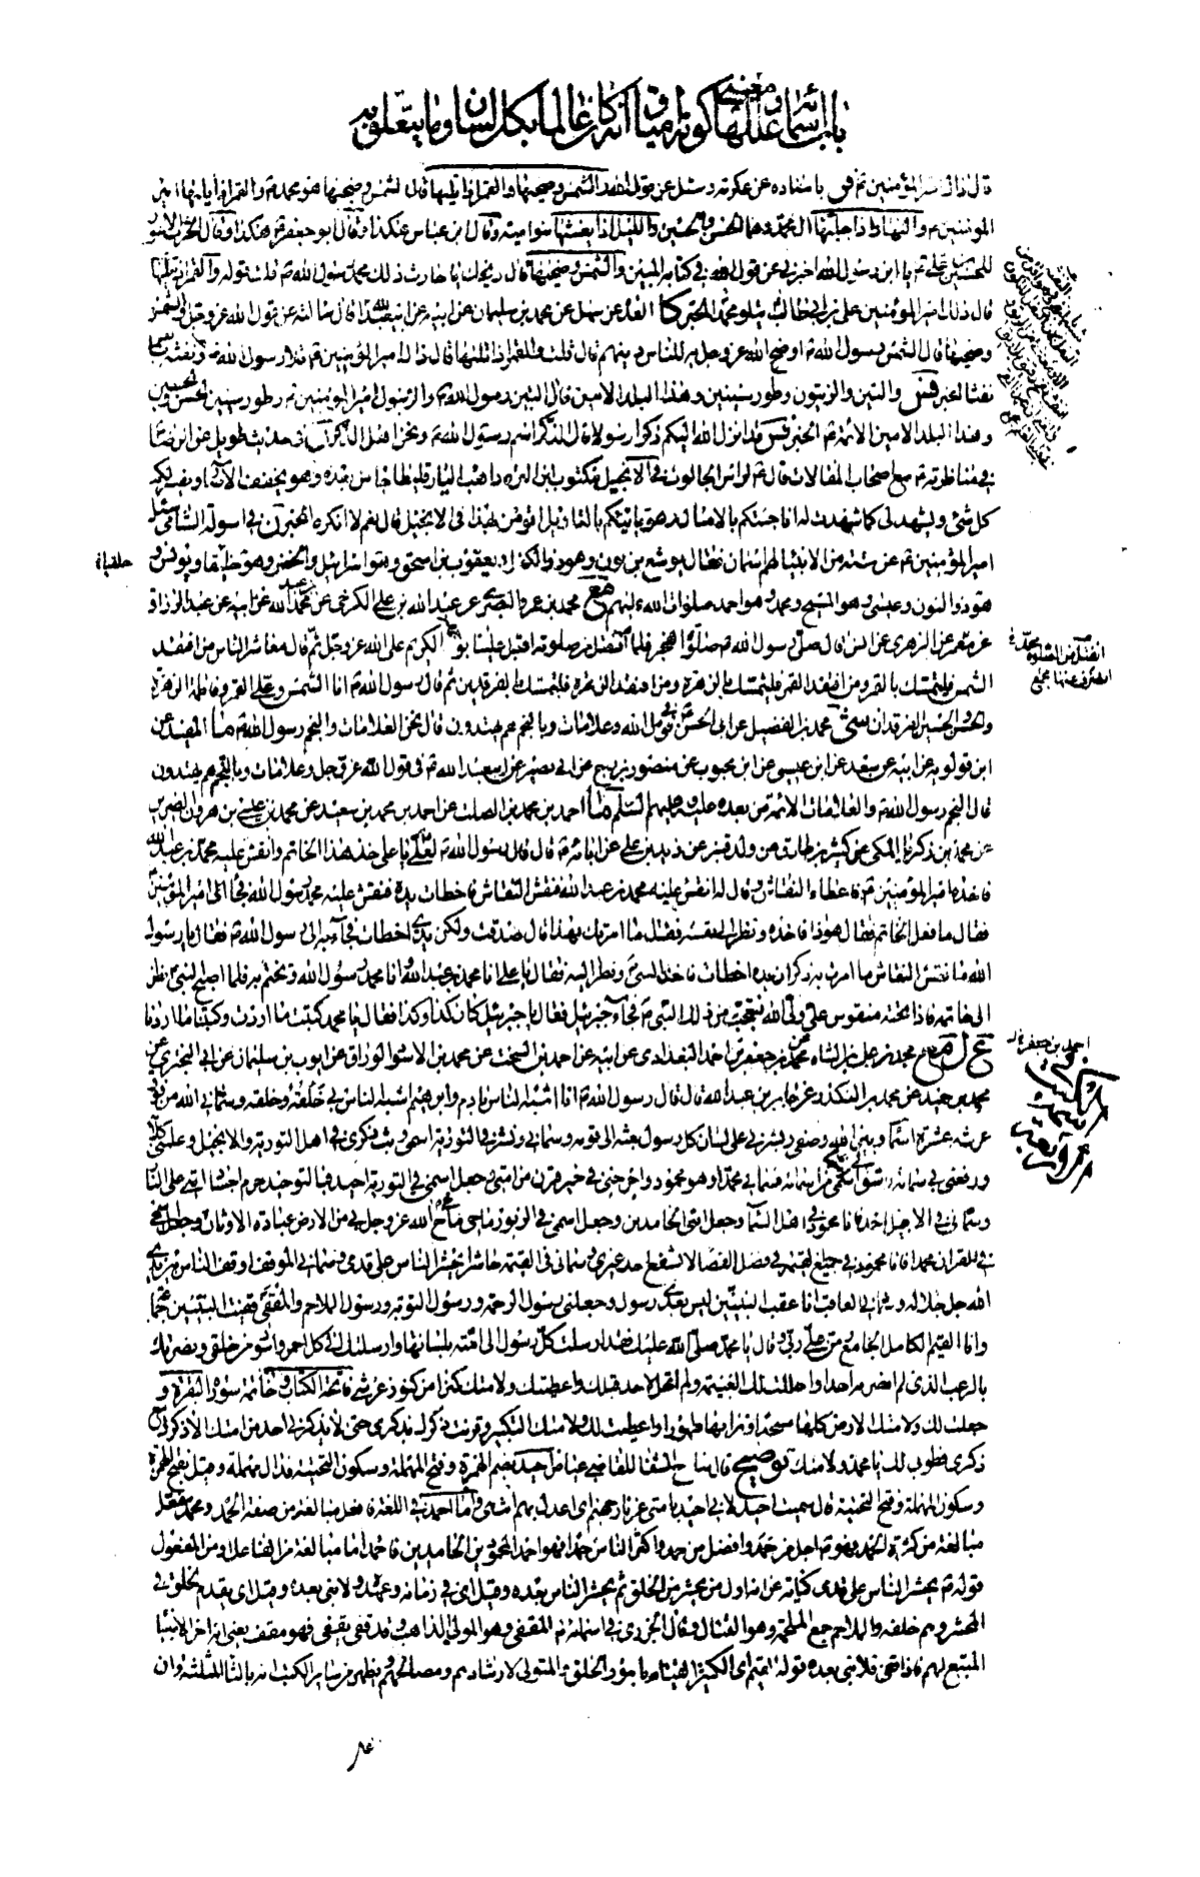 باب أسمائه وعللها ومعنى كونه أميا وأنه كان عالما بكل لسان وما يتعلق به
أمير المؤمنين فر باسناده عن عكرمة وسئل عن قول الله والشمس وضحيها والقمر إذا تليها قال الشمس وضحيها هو محمد والقمر إذا تليها أمير
المؤمنين والنهار إذا جليها آل محمد وهما الحسن والحسين والليل إذا يغشيها بنو امية وقال ابن عباس هكذا وقال أبو جعفر هكذا وقال الحارث الأعور
للحسين بن علي يا ابن رسول الله أخبرني عن قول الله في كتابه المبين والشمس وضحيها قال ويحك يا حارث ذلك محمد رسول الله قلت قوله والقمر إذا تليها
قال ذلك أمير المؤمنين علي بن أبي طالب يتلو محمدا الخبر كا العدة عن سهل عن محمد بن سليمان عن أبيه عن أبي عبد الله قال سألته عن قول الله عز وجل والشمس
وضحيها قال الشمس رسول الله أوضح الله عز وجل به للناس دينهم قال قلت والقمر إذا تليها قال ذاك أمير المؤمنين تلا رسول الله ونفثه
نفثا الخبر فس والتين والزيتون وطور سينين وهذا البلد الأمين قال التين رسول الله والزيتون أمير المؤمنين وطور سينين الحسن والحسين
وهذا البلد الأمين الأئمة الخبر فس قد أنزل الله إليكم ذكرا رسولا قال الذكر اسم رسول الله ونحن أهل الذكر في حديث طويل عن الرضا
في مناظرته مع أصحاب المقالات قال لرأس الجالوت في الانجيل مكتوب ابن البرة ذاهب والبارقليطا جاء من بعده وهو يخفف الآصار ويفسر لكم
كل شئ ويشهد لي كما شهدت له أنا جئتكم بالأمثال وهو يأتيكم بالتأويل أتؤمن بهذا في الانجيل قال نعم لا أنكره الخبر في أسولة الشامي سئل
أمير المؤمنين عن ستة من الأنبياء لهم اسمان فقال يوشع بن نون وهو ذو الكفل ويعقوب بن إسحق وهو إسرائيل والخضر وهو حلقيا ويونس و
هو ذو النون وعيسى وهو المسيح ومحمد وهو أحمد صلوات الله عليهم مع محمد بن عمرو البصري عن عبد الله بن علي الكرخي عن محمد بن عبد الله عن أبيه عن عبد الرزاق
عن معمر عن الزهري عن أنس قال صلى رسول الله صلوة الفجر فلما انفتل من صلوته أقبل علينا بوجهه الكريم على الله عز وجل ثم قال معاشر الناس من افتقد
الشمس فليتمسك بالقمر ومن افتقد القمر فليتمسك بالزهرة ومن افتقد الزهرة فليتمسك بالفرقدين ثم قال رسول الله أنا الشمس وعلي القمر وفاطمة الزهرة
والحسن والحسين الفرقدان شى محمد بن الفضيل عن أبي الحسن في قول الله وعلامات وبالنجم هم يهتدون قال نحن العلامات والنجم رسول الله ما المفيد عن
ابن قولويه عن أبيه عن سعد عن ابن عيسى عن ابن محبوب عن منصور بزرج عن أبي بصير عن أبي عبد الله في قول الله عز وجل وعلامات وبالنجم هم يهتدون
قال النجم رسول الله والعلامات الأئمة من بعده عليه وعليهم السلم ما أحمد بن محمد بن الصلت عن أحمد بن محمد بن سعيد عن محمد بن عيسى بن هرون الضرير
عن محمد بن زكريا المكي عن كثير بن طارق من ولد قنبر عن زيد بن علي عن آبائه قال قال رسول الله لعلي يا علي خذ هذا الخاتم وانقش عليه محمد بن عبد الله
فأخذه أمير المؤمنين فأعطاه النقاش وقال له انقش عليه محمد بن عبد الله فنقش النقاش فأخطأت يده فنقش عليه محمد رسول الله فجاء أمير المؤمنين
فقال ما فعل الخاتم فقال هو ذا فأخذه ونظر إلى نقشه فقال ما أمرتك بهذا قال صدقت ولكن يدي أخطأت فجاء به إلى رسول الله فقال يا رسول
الله ما نقش النقاش ما أمرت به ذكر أن يده أخطأت فأخذه النبي ونظر إليه فقال يا علي أنا محمد بن عبد الله وأنا محمد رسول الله وتختم به فلما أصبح النبي نظر
إلى خاتمه فإذا تحته منقوش علي ولي الله فتعجب من ذلك النبي فجاء جبرئيل فقال يا جبرئيل كان كذا وكذا فقال يا محمد كتبت ما أردت وكتبنا ما أردنا
ع ل مع محمد بن علي بن الشاه عن محمد بن جعفر بن أحمد البغدادي عن أبيه عن أحمد بن السخت عن محمد بن الأسود الوراق عن أيوب بن سليمان عن أبي البختري عن
محمد بن حميد عن محمد بن المنكدر عن جابر بن عبد الله قال قال رسول الله أنا أشبه الناس بآدم وإبراهيم أشبه الناس بي خلقه وخلقه وسماني الله من فوق
عرشه عشرة أسماء وبين الله وصفي وبشرني على لسان كل رسول بعثه إلى قومه وسماني ونشر في التورية اسمي وبث ذكري في أهل التورية والانجيل وعلمني كلامه
ورفعني في سمائه وشق لي اسمي من أسمائه فسماني محمدا وهو محمود وأخرجني في خير قرن من أمتي وجعل اسمي في التورية احيد فبالتوحيد حرم أجساد أمتي على النار
وسماني في الانجيل أحمد فأنا محمود في أهل السماء وجعل أمتي الحامدين وجعل اسمي في الزبور ماحي محا الله عز وجل بي من الأرض عبادة الأوثان وجعل اسمي
في القرآن محمدا فأنا محمود في جميع القيمة في فصل القضاء لا يشفع أحد غيري وسماني في القيمة حاشرا يحشر الناس على قدمي وسماني الموقف أوقف الناس بين يدي
الله جل جلاله وسماني العاقب أنا عقب النبيين ليس بعدي رسول وجعلني رسول الرحمة ورسول التوبة ورسول الملاحم والمقفي قفيت النبيين جماعة
وأنا القيم الكامل الجامع ومن علي ربي وقال يا محمد صلى الله عليك فقد أرسلت كل رسول إلى أمته بلسانها وأرسلتك إلى كل أحمر وأسود من خلقي ونصرتك
بالرعب الذي لم أنصر به أحدا وأحللت لك الغنيمة ولم تحل لأحد قبلك وأعطيتك ولأمتك كنزا من كنوز عرشي فاتحة الكتاب وخاتمة سورة البقرة و
جعلت لك ولأمتك الأرض كلها مسجدا وترابها طهورا وأعطيت لك ولأمتك التكبير وقرنت ذكرك بذكري حتى لا يذكرني أحد من أمتك إلا ذكرك مع
ذكري فطوبى لك يا محمد ولأمتك توضيح قال شارح الشفا للقاضي عياض أحيد بضم الهمزة وفتح المهملة وسكون التحتية فدال مهملة وقيل بفتح الهمزة
وسكون المهملة وفتح التحتية قال سميت أحيد لأني أحيد بأمتي عن نار جهنم أي أعدل بهم انتهى وأما أحمد في اللغة فافعل مبالغة من صفة الحمد ومحمد مفعل
مبالغة من كثرة الحمد فهو أجل من حمد وأفضل من حمد وأكثر الناس حمدا فهو أحمد المحمودين وأحمد الحامدين فأحمد إما مبالغة من الفاعل أو من المفعول
قوله يحشر الناس على قدمي كناية عن أنه أول من يحشر من الخلق ثم يحشر الناس بعده وقيل أي في زمانه وعهده ولا نبي بعده وقيل أي يقدم الخلق في
المحشر وهم خلفه والملاحم جمع الملحمة وهو القتال وقال الجزري في أسمائه المقفي وهو المولي الذاهب وقد قفى يقفي فهو مقف يعني أنه آخر الأنبياء
المتبع لهم فإذا قفى فلا نبي بعده قوله القيم أي الكثير القيام بأمور الخلق والمتولي لإرشادهم ومصالحهم ويظهر من سائر الكتب أنه بالثاء المثلثة وأن